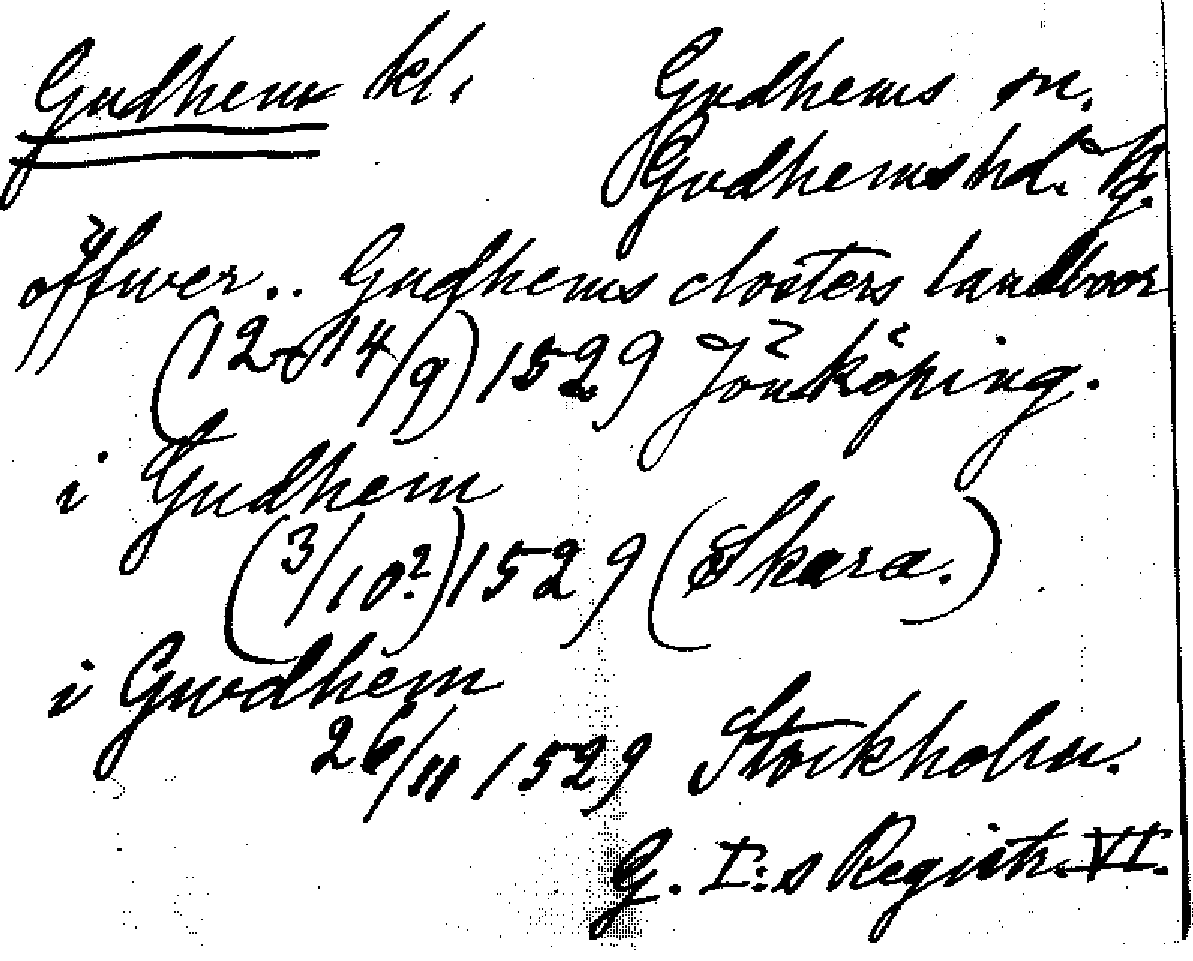 Gudhem kl. Gudhems sn.
Gudhems hd. Vg.
öffwer.. Gudhems closters landboor
(12-14/9) 1529 Jönköping.
i Gudhem
(3/10?) 1529 (Skara.)
i Gwdhem
26/11 1529 Stockholm.
G. I:s Registr. VI.